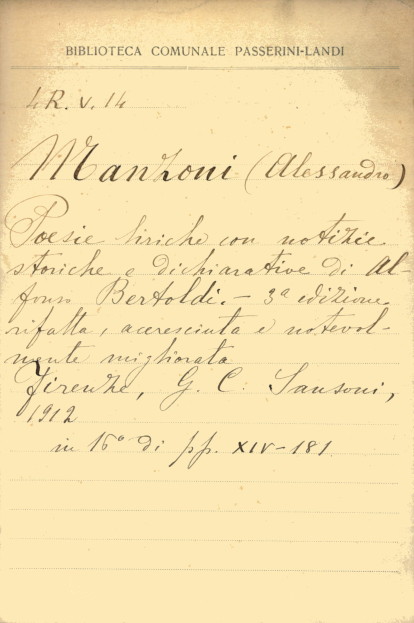 BIBLIOTECA COMUNALE PASSERINI-LANDI
4R. V. 14
Manzoni (Alessandro)
Poesie liriche con notizie
storiche e dichiarative di Al-
fonso Bertoldi. – 3ª edizione
rifatta, accresciuta e notevol-
mente migliorata
Firenze, G. C. Sansoni,
1912
in 16° di pp. XIV-181